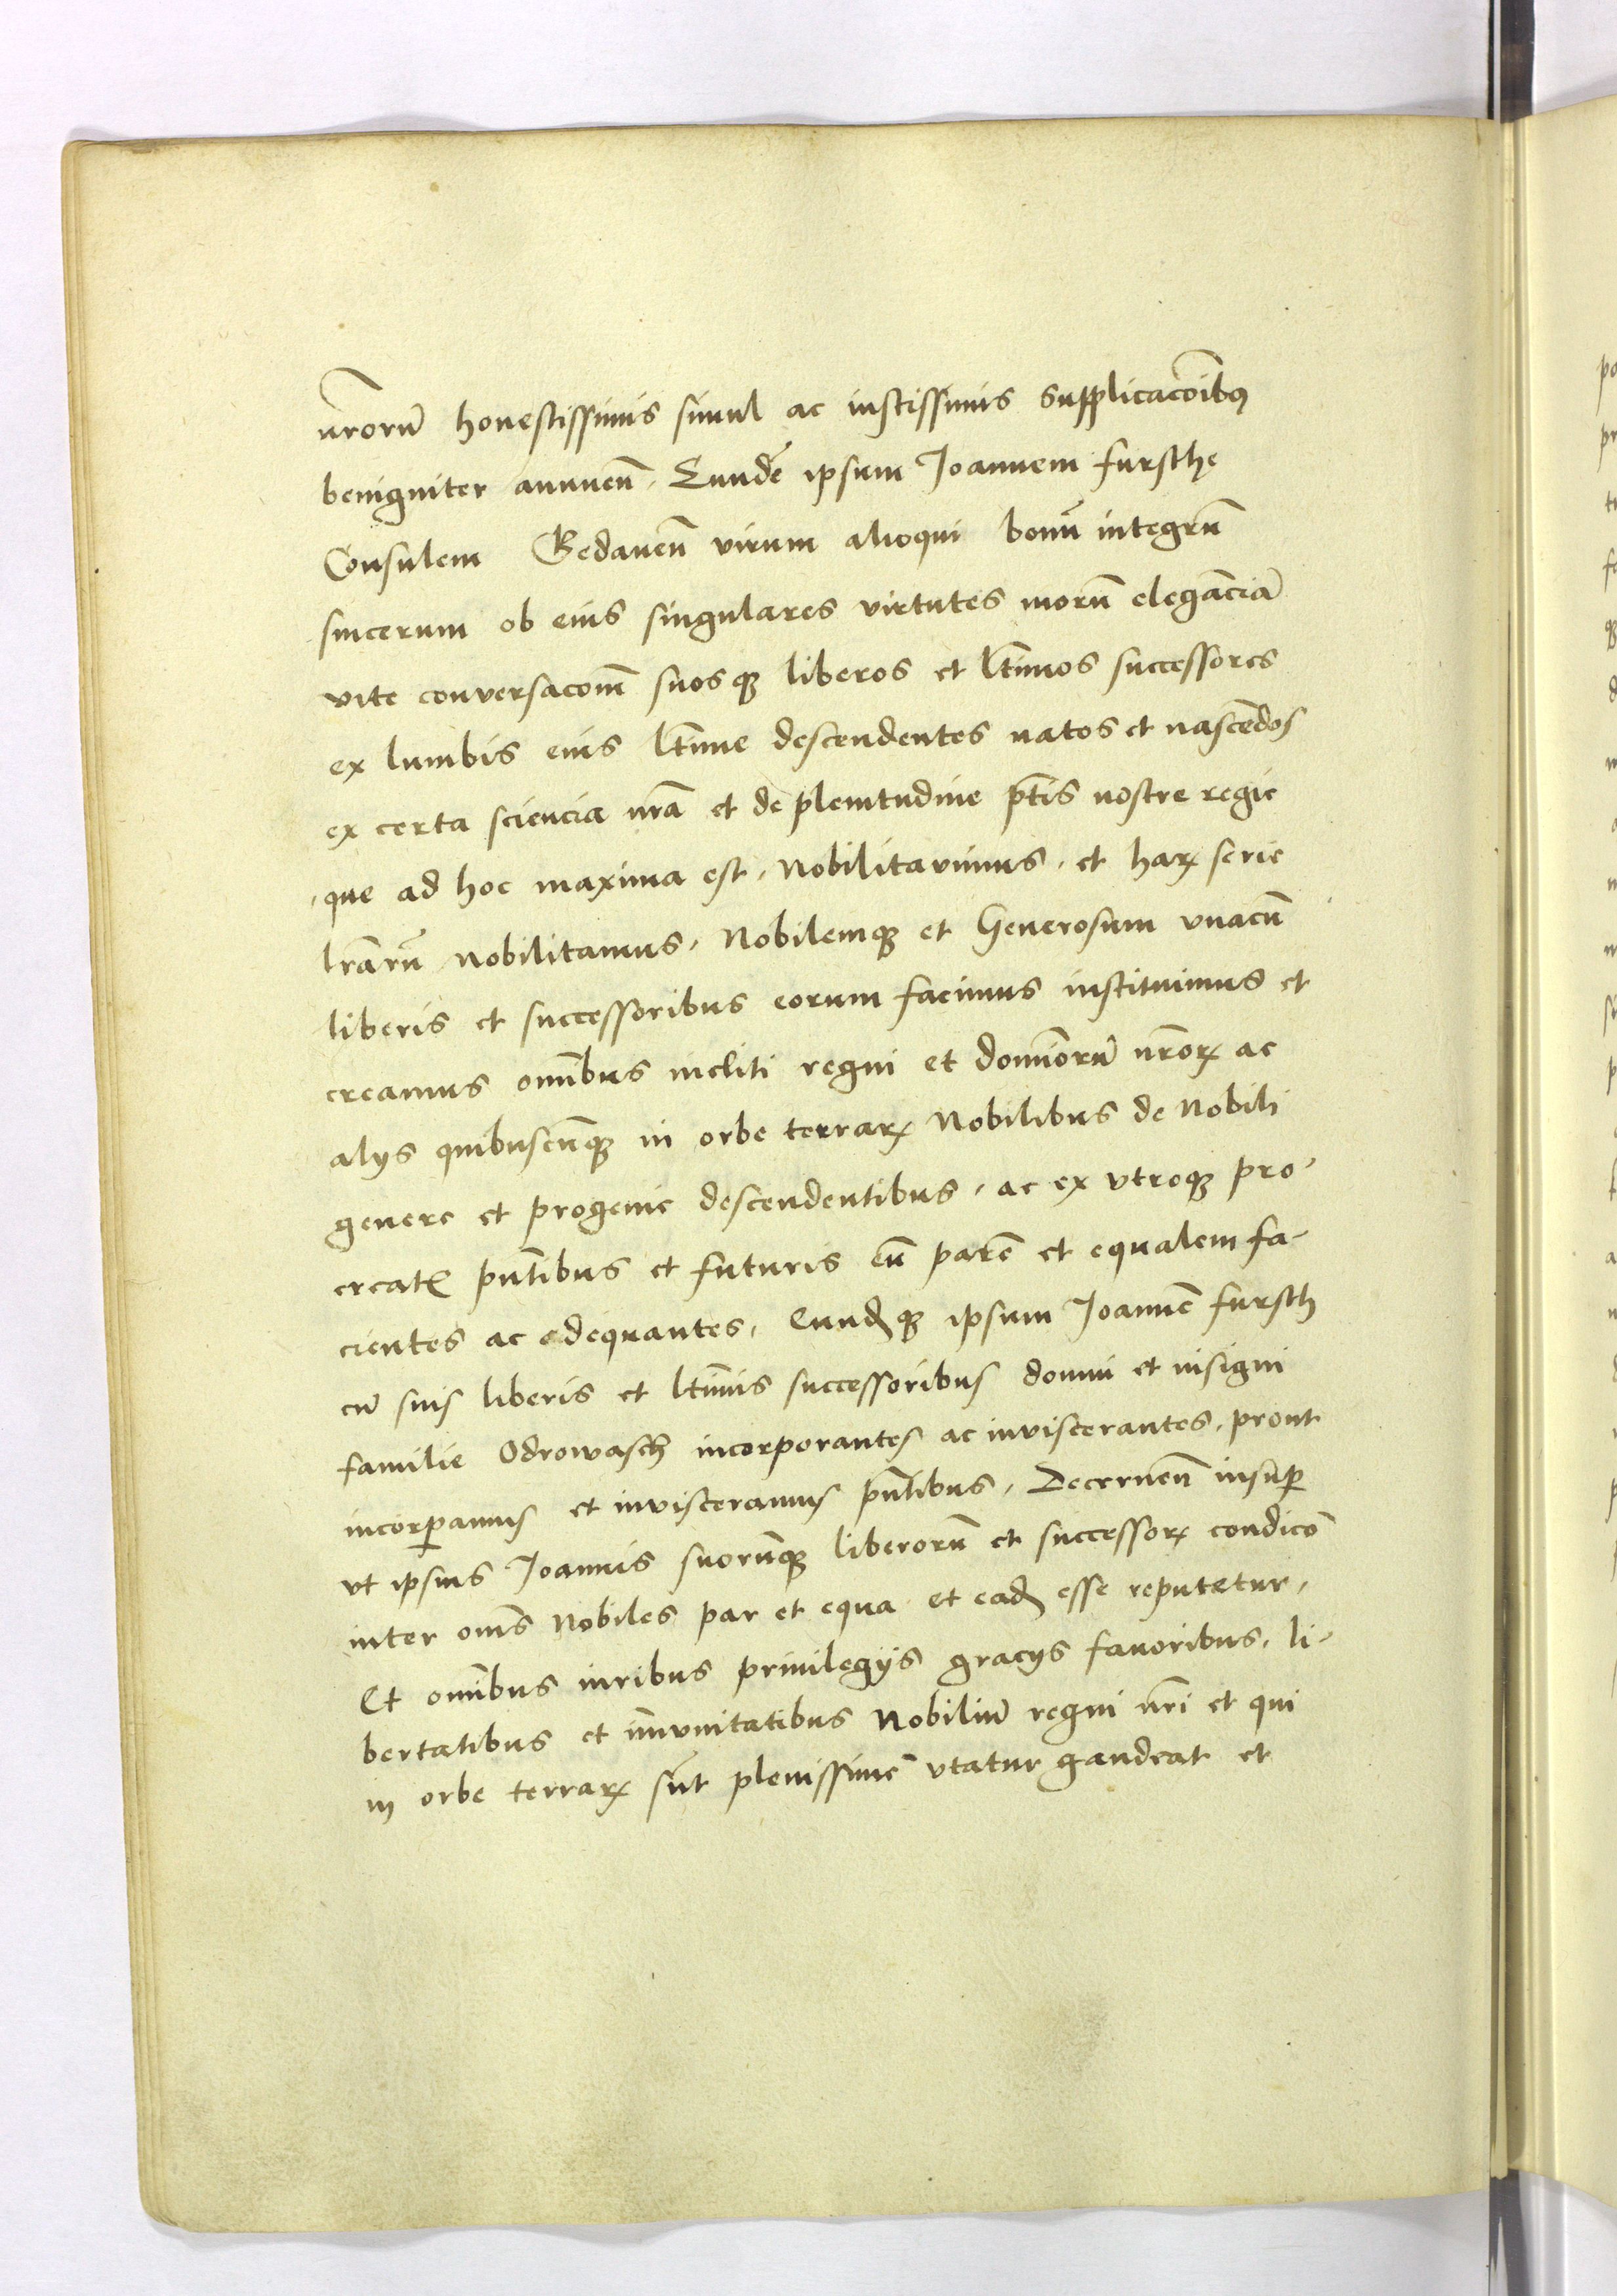 nr̄orū honestissimis simul ac iustissimis supplicacōibus
benigniter annuen̄. Eundē ipsum Joannem fursthe
Consulem Gedanen̄ virum alioqui bonū integrū
sincerum ob eius singulares virtutes morū elegāciā
vite conversacom̄ suosq̨ liberos et ltīmos successores
ex lumbis eius ltīme descendentes natos et nascēdos
ex certa sciencia nrā et de plenitudine ptīs nostre regie
que ad hoc maxima est, Nobilitavimus, et harꝝ serie
lrārū nobilitamus, Nobilemq̨ et Generosum vnacū
liberis et successoribus eorum facimus instituimus et
creamus omībus incliti regni et domīorū nr̄orꝝ ac
alys quibuscūq̨ in orbe terrarꝝ Nobilibus de Nobili
genere et progenie descendentibus, ac ex vtroq̨ pro-
creatꝭ pn̄tibus et futuris eū parē et equalem fa-
cientes ac adequantes, Eundꝫq̨ ipsum Joannē fursth
cū suis liberis et ltīmis successoribus domui et insigni
familie Odrowasch incorporantes ac inviscerantes, prout
incorꝑamus et invisceramus pn̄tibus, Decernen̄ insuꝑ
vt ipsius Joannis suorūq̨ liberorū et successorꝝ condicō
inter om̄s Nobiles par et equa et eadꝫ esse reputetur,
Et omībus iuribus priuilegÿs gracÿs fauoribus, li-
bertatibus et im̄vnitatibus Nobiliū regni nr̄i et qui
in orbe terrarꝝ sūt plenissime vtatur gaudeat et